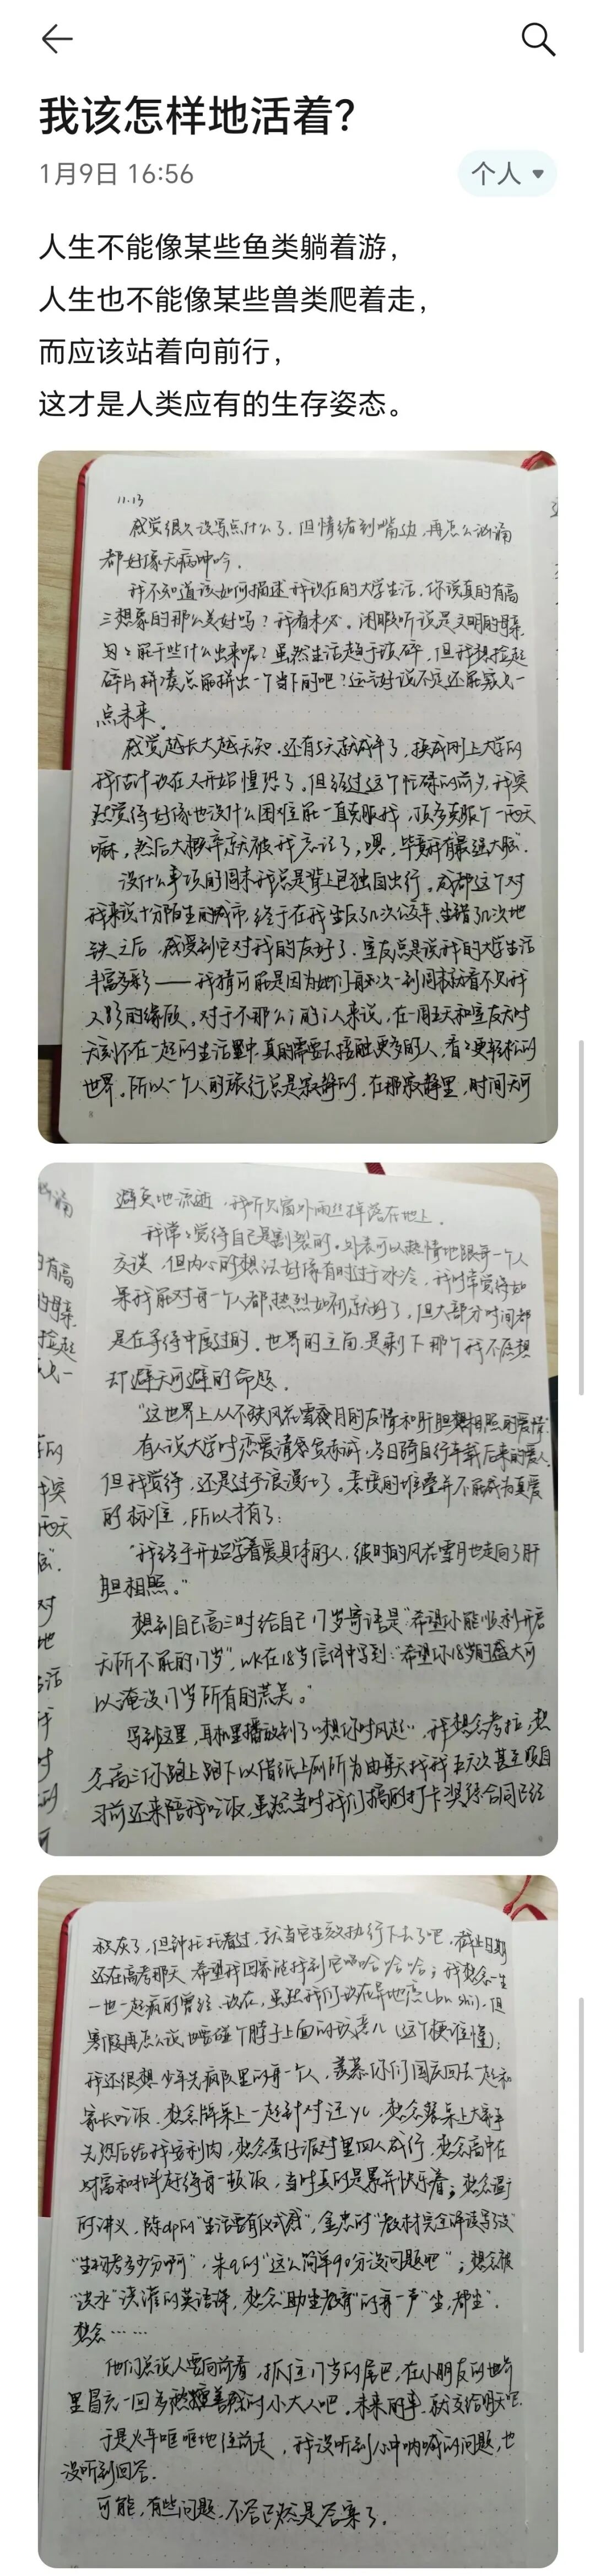 我该怎样地活着?
1月9日 16:56
个人
人生不能像某些鱼类躺着游，
人生也不能像某些兽类爬着走，
而应该站着向前行，
这才是人类应有的生存姿态。
11.13
感觉很久没写点什么了，但情绪到嘴边，再怎么汹涌
都好像无病呻吟。
我不知道该如何描述我现在的大学生活，你说真的有高
三想象的那么美好吗？我看未必。闲暇听说是文明的母亲，
能干些什么出来呢？虽然生活趋于破碎，但我想捡起
碎片拼凑总能拼出一个当下的吧？运气好说不定还能
点未来。
感觉越长大越无知，还有5天就成年了，换成刚上大学的
我估计现在又开始惶恐了。但经过这个忙碌的前夕，我突
然觉得好像也没什么困难能一直克服我，顶多克服个一两天
嘛，然后大概率就被我忘记了，嗯，毕竟我有最强大脑。
没什么事项的周末我总是背上包独自出行，成都这个对
我来说十分陌生的城市，终于在我坐反了几次公交车、坐错了几次地
铁之后，感受到它对我的友好了。室友总是说我的大学生活
丰富多彩——我猜可能是因为她们每次一到周末就看不见我
人影的缘故。对于不那么i的i人来说，在一周五天和室友时
时刻刻在一起的生活里，真的需要去接触更多的人，看看更轻松的
世界。所以一个人的旅行总是寂静的，在那寂静里，时间无可
8
避免地流逝，我听见窗外雨丝掉落在地上。
我常常觉得自己是割裂的，外表可以热情地跟每一个人
交谈，但内心的想法好像有时过于冰冷，我时常觉得如
果我能对每一个人都热烈如初就好了，但大部分时间都
是在等待中度过的。世界的立面，是剩下那个我不愿想
却避无可避的命题。
“这世界上从不缺风花雪月的友情和肝胆相照的爱情”
有人说大学时恋爱清贫赤诚，冬日骑自行车载后来的爱人，
但我觉得，还是过于浪漫化了。表演的堆叠并不能成为真爱
的标准，所以才有了：
“我终于开始学着爱具体的人，彼时的风花雪月也走向了肝
胆相照。”
想到自己高三时给自己17岁寄语是“希望你能顺利开启
无所不能的17岁”，wk在18岁信件中写到：“希望你18岁的盛大可
以淹没17岁所有的荒芜。”
写到这里，耳机里播放到了“想你时风起”，我想念考拉，想
念高三你跑上跑下以借纸上厕所为由每天找我五六次甚至晚自
习前还来陪我吃饭，虽然当时我们搞的打卡奖惩合同已经
积灰了，但钟托托看过，就当它生效执行下去了吧，截止日期
还在高考那天，希望我回家能找到它哈哈哈哈；我想念生
一也一起疯的曾经，现在，虽然我们现在异地恋(bu shi)，但
寒假再怎么说也要碰个脖子上面的玩意儿(这个梗谁懂)；
我还很想少年先疯队里的每一个人，羡慕你们国庆回去一起和
家长吃饭，想念牌桌上一起针对过yc，想念餐桌上大家争
先恐后给我夹刷肉，想念蛋仔派对里四人成行，想念高中在
对窗和抖抖赶得每一顿饭，当时真的是累并快乐着；想念
的讲义，陈dp的“生活要有仪式感”，金忠的“教材完全解读
“生物考多少分啊”，朱q的“这么简单90分没问题吧”；想念被
“洪水”浇灌的英语课，想念“助坐教育”的每一声“坐，都坐”。
想念……
他们总说人要向前看，抓住17岁的尾巴，在小朋友的世界
里冒充一回多愁善感的小大人吧。未来的事，就交给明天吧。
于是火车哐哐地往前走，我没听到心中呐喊的问题，也
没听到回答。
可能，有些问题，不答已然是答案了。